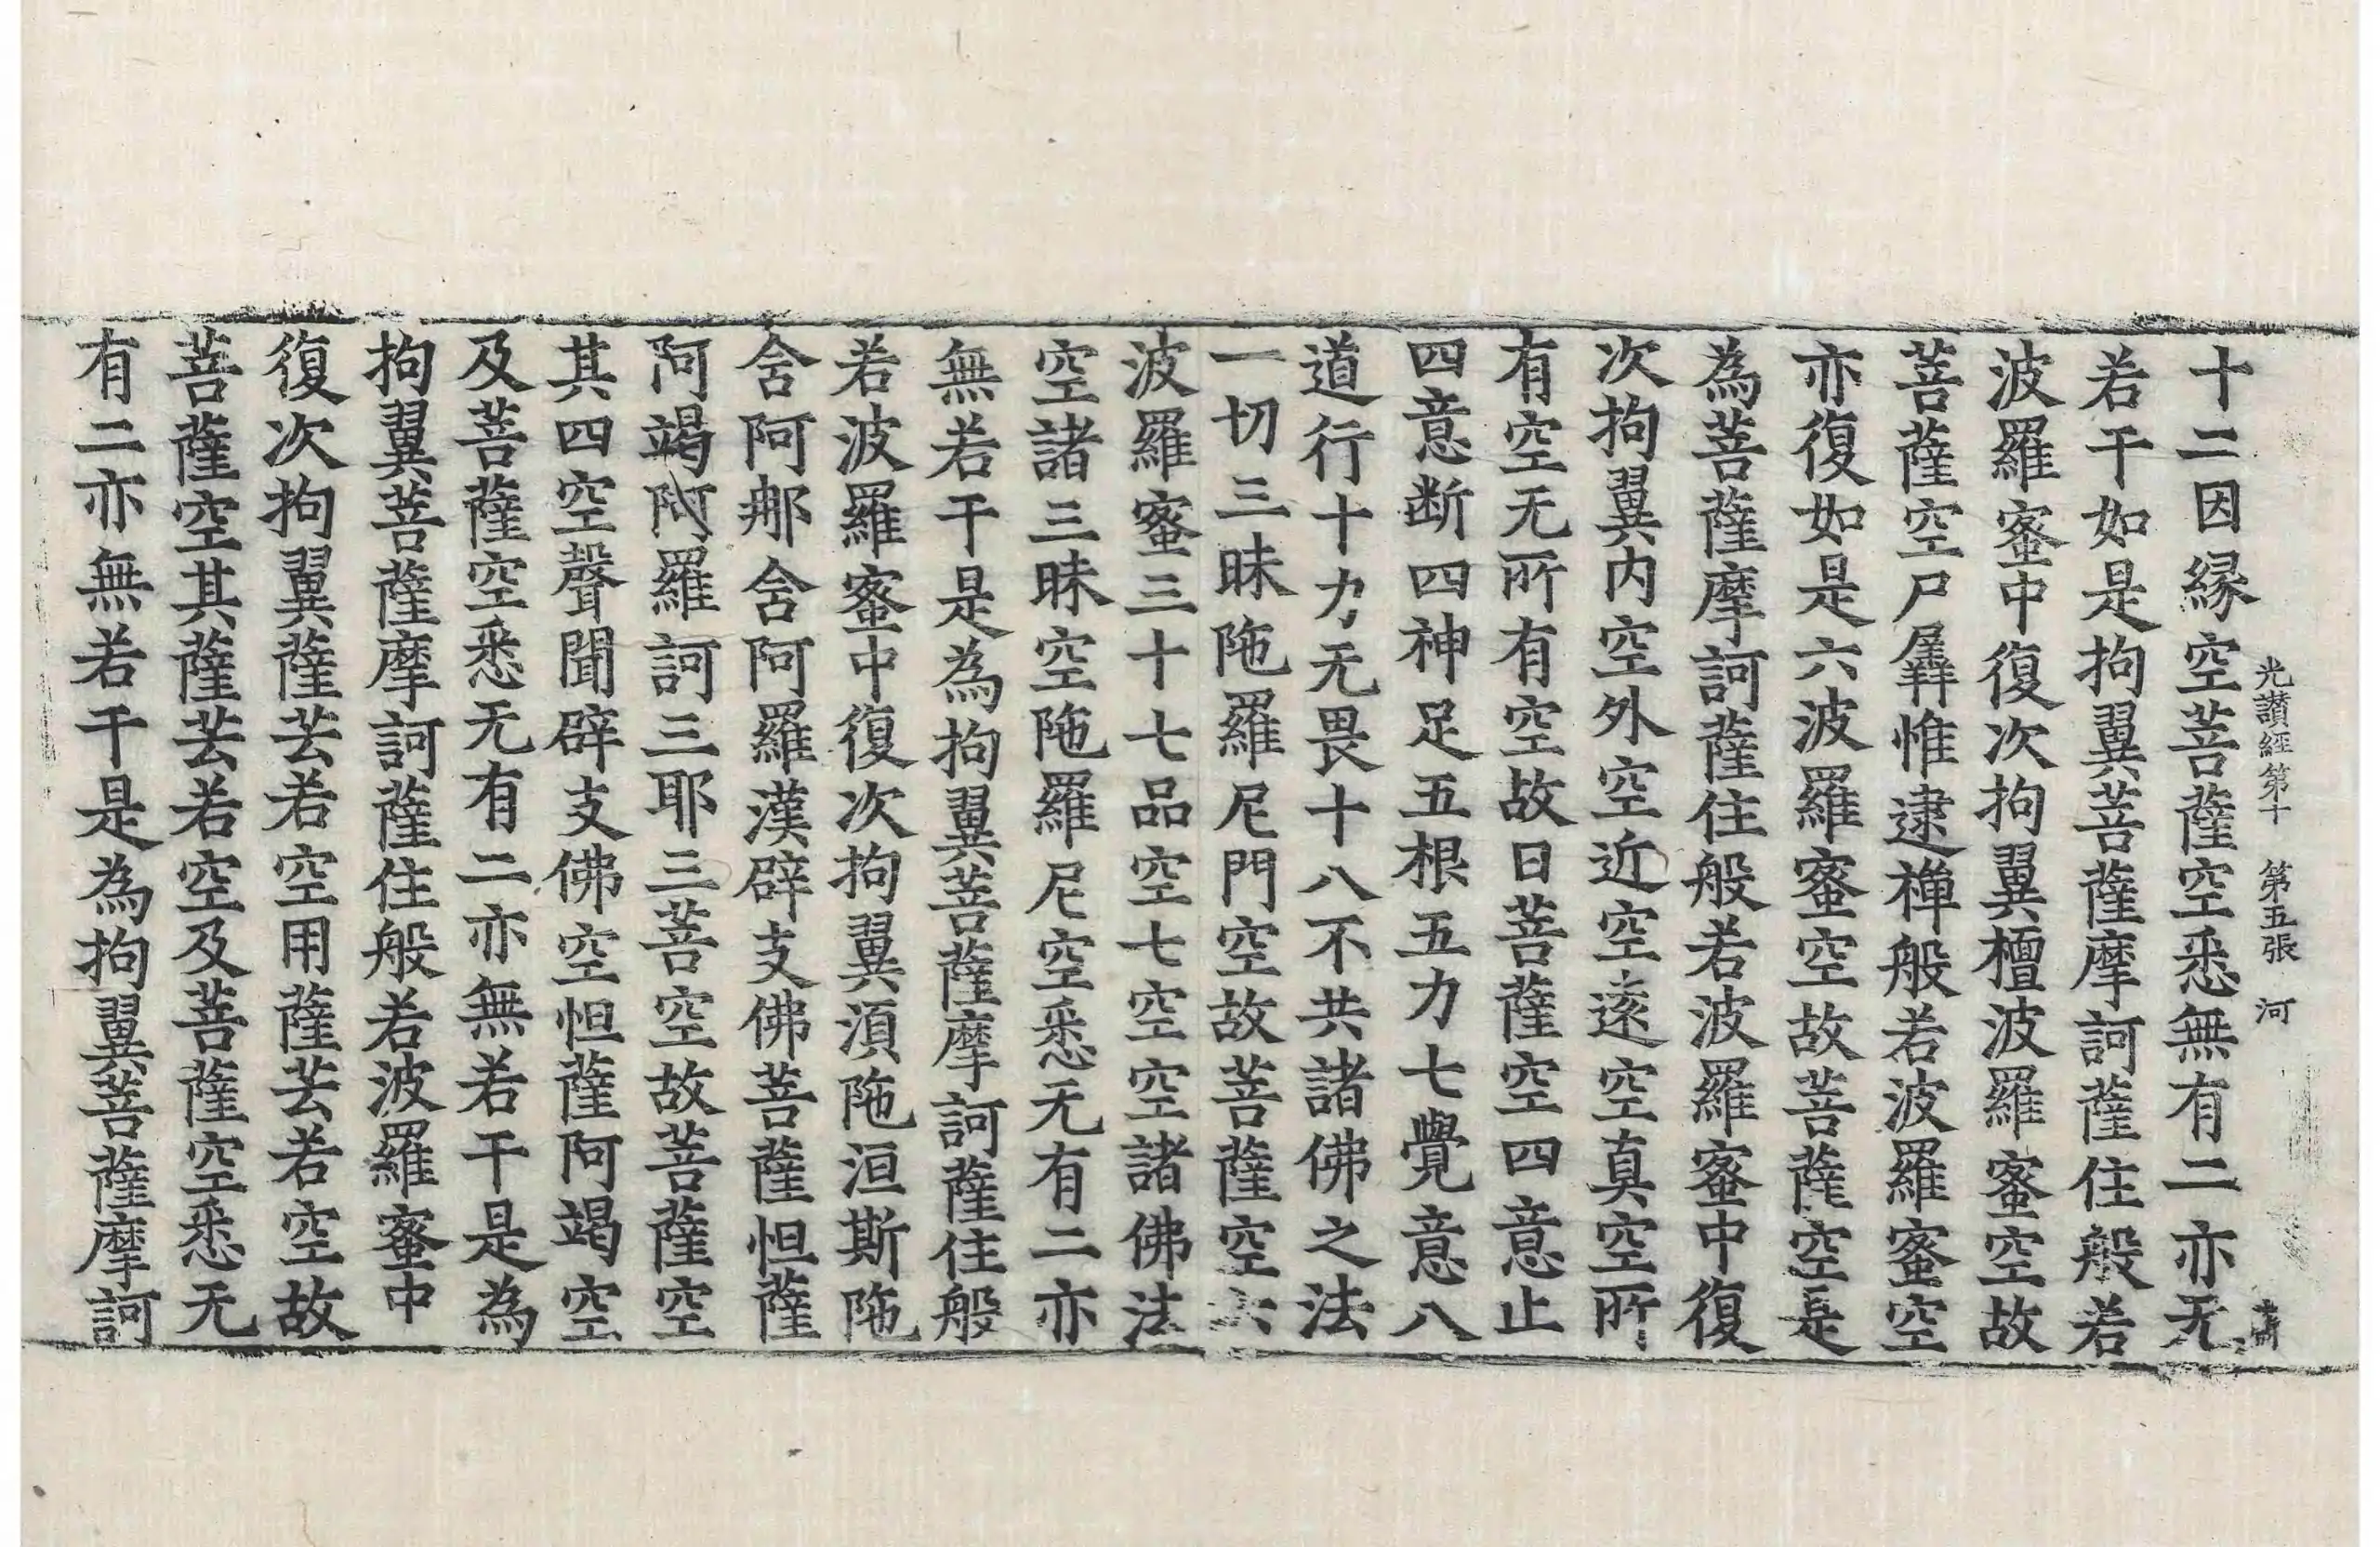 光讃經第十 第五張 河
十二因縁空菩薩空悉無有二亦无
若干如是拘翼菩薩摩訶薩住般若
波羅蜜中復次拘翼檀波羅蜜空故
菩薩空尸羼惟逮禅般若波羅蜜空
亦復如是六波羅蜜空故菩薩空是
為菩薩摩訶薩住般若波羅蜜中復
次拘翼内空外空近空遠空真空所
有空无所有空故曰菩薩空四意止
四意断四神足五根五力七覺意八
道行十力无畏十八不共諸佛之法
一切三昧陁羅尼門空故菩薩空六
波羅蜜三十七品空七空空諸佛法
空諸三昧空陁羅尼空悉无有二亦
無若干是為拘翼菩薩摩訶薩住般
若波羅蜜中復次拘翼須陁洹斯陁
含阿那含阿羅漢辟支佛菩薩怛薩
阿竭阿羅訶三耶三菩空故菩薩空
其四空聲聞辟支佛空怛薩阿竭空
及菩薩空悉无有二亦無若干是為
拘翼菩薩摩訶薩住般若波羅蜜中
復次拘翼薩芸若空用薩芸若空故
菩薩空其薩芸若空及菩薩空悉无
有二亦無若干是為拘翼菩薩摩訶